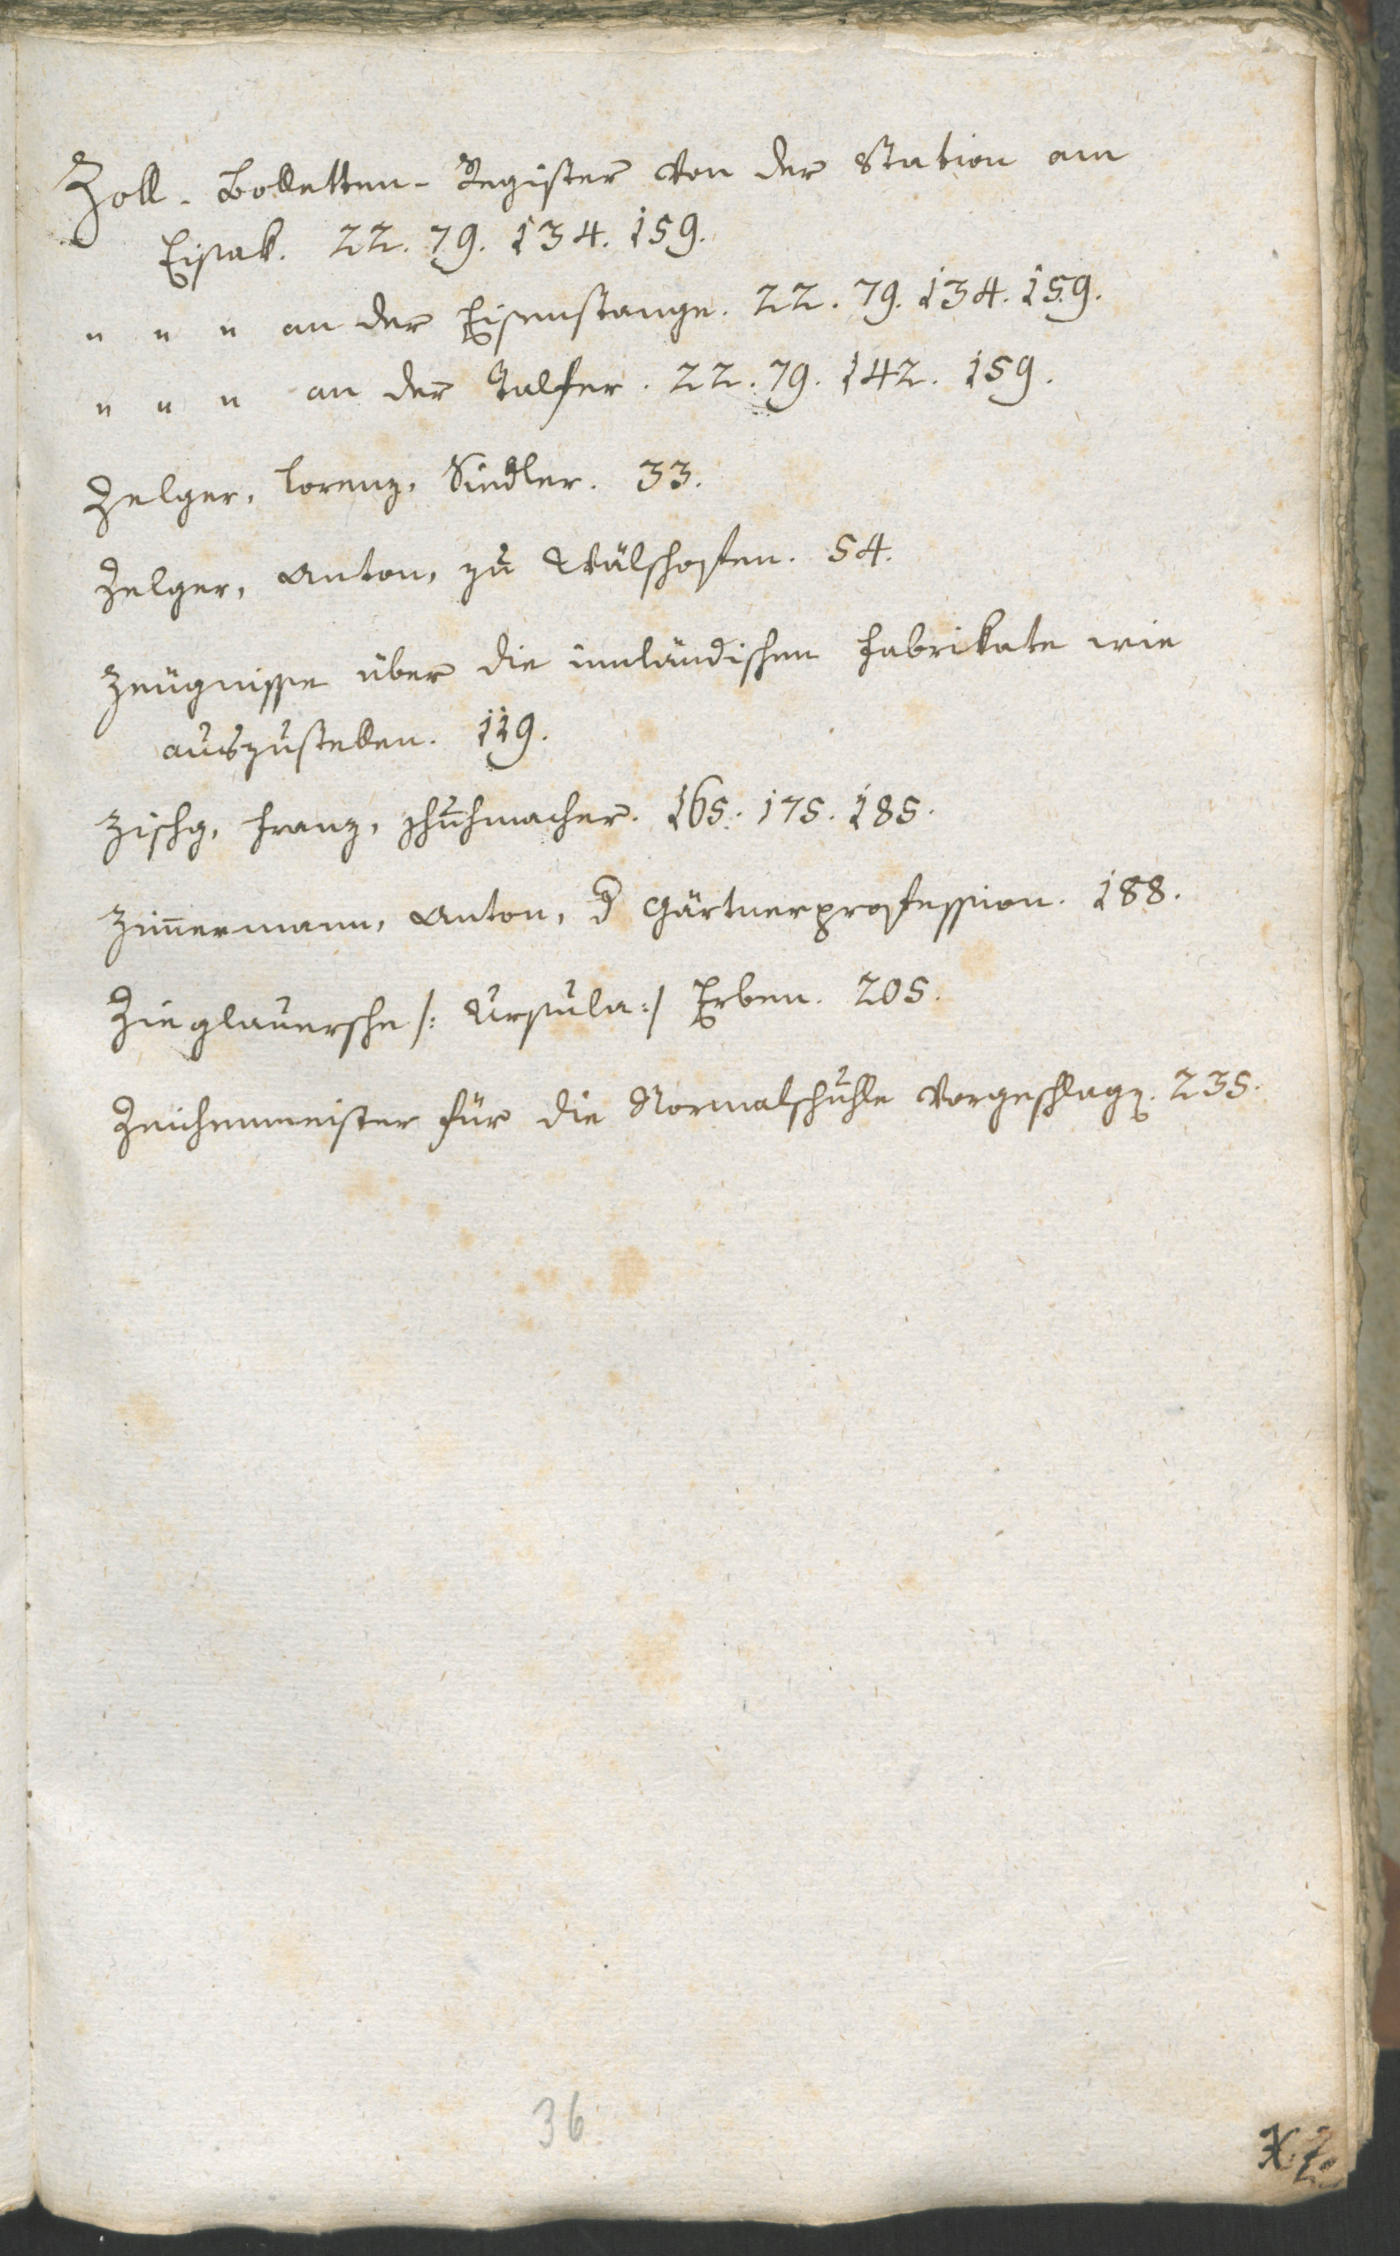 Zoll-Bolletten-Register von der Station am
Eisak. 22. 79. 134. 159.
" " " an der Eisenstange. 22. 79. 134. 159.
" " " an der Talfer. 22. 79. 142. 159.
Zelger, Lorenz, Sindler. 33.
Zelger, Anton, zu Wälshofen. 54.
Zeügnisse über die innländischen Fabrikate wie
auszustellen. 119.
Zischg, Franz, Schuhmacher. 165. 175. 185.
Zim̄ermann, Anton, Gärtnerprofession. 188.
Zieglauersche /: Ursula :/ Erben. 205.
Zeichenmeister für die Normalschuhle vorgeschlag. 235.
36
X. Z.